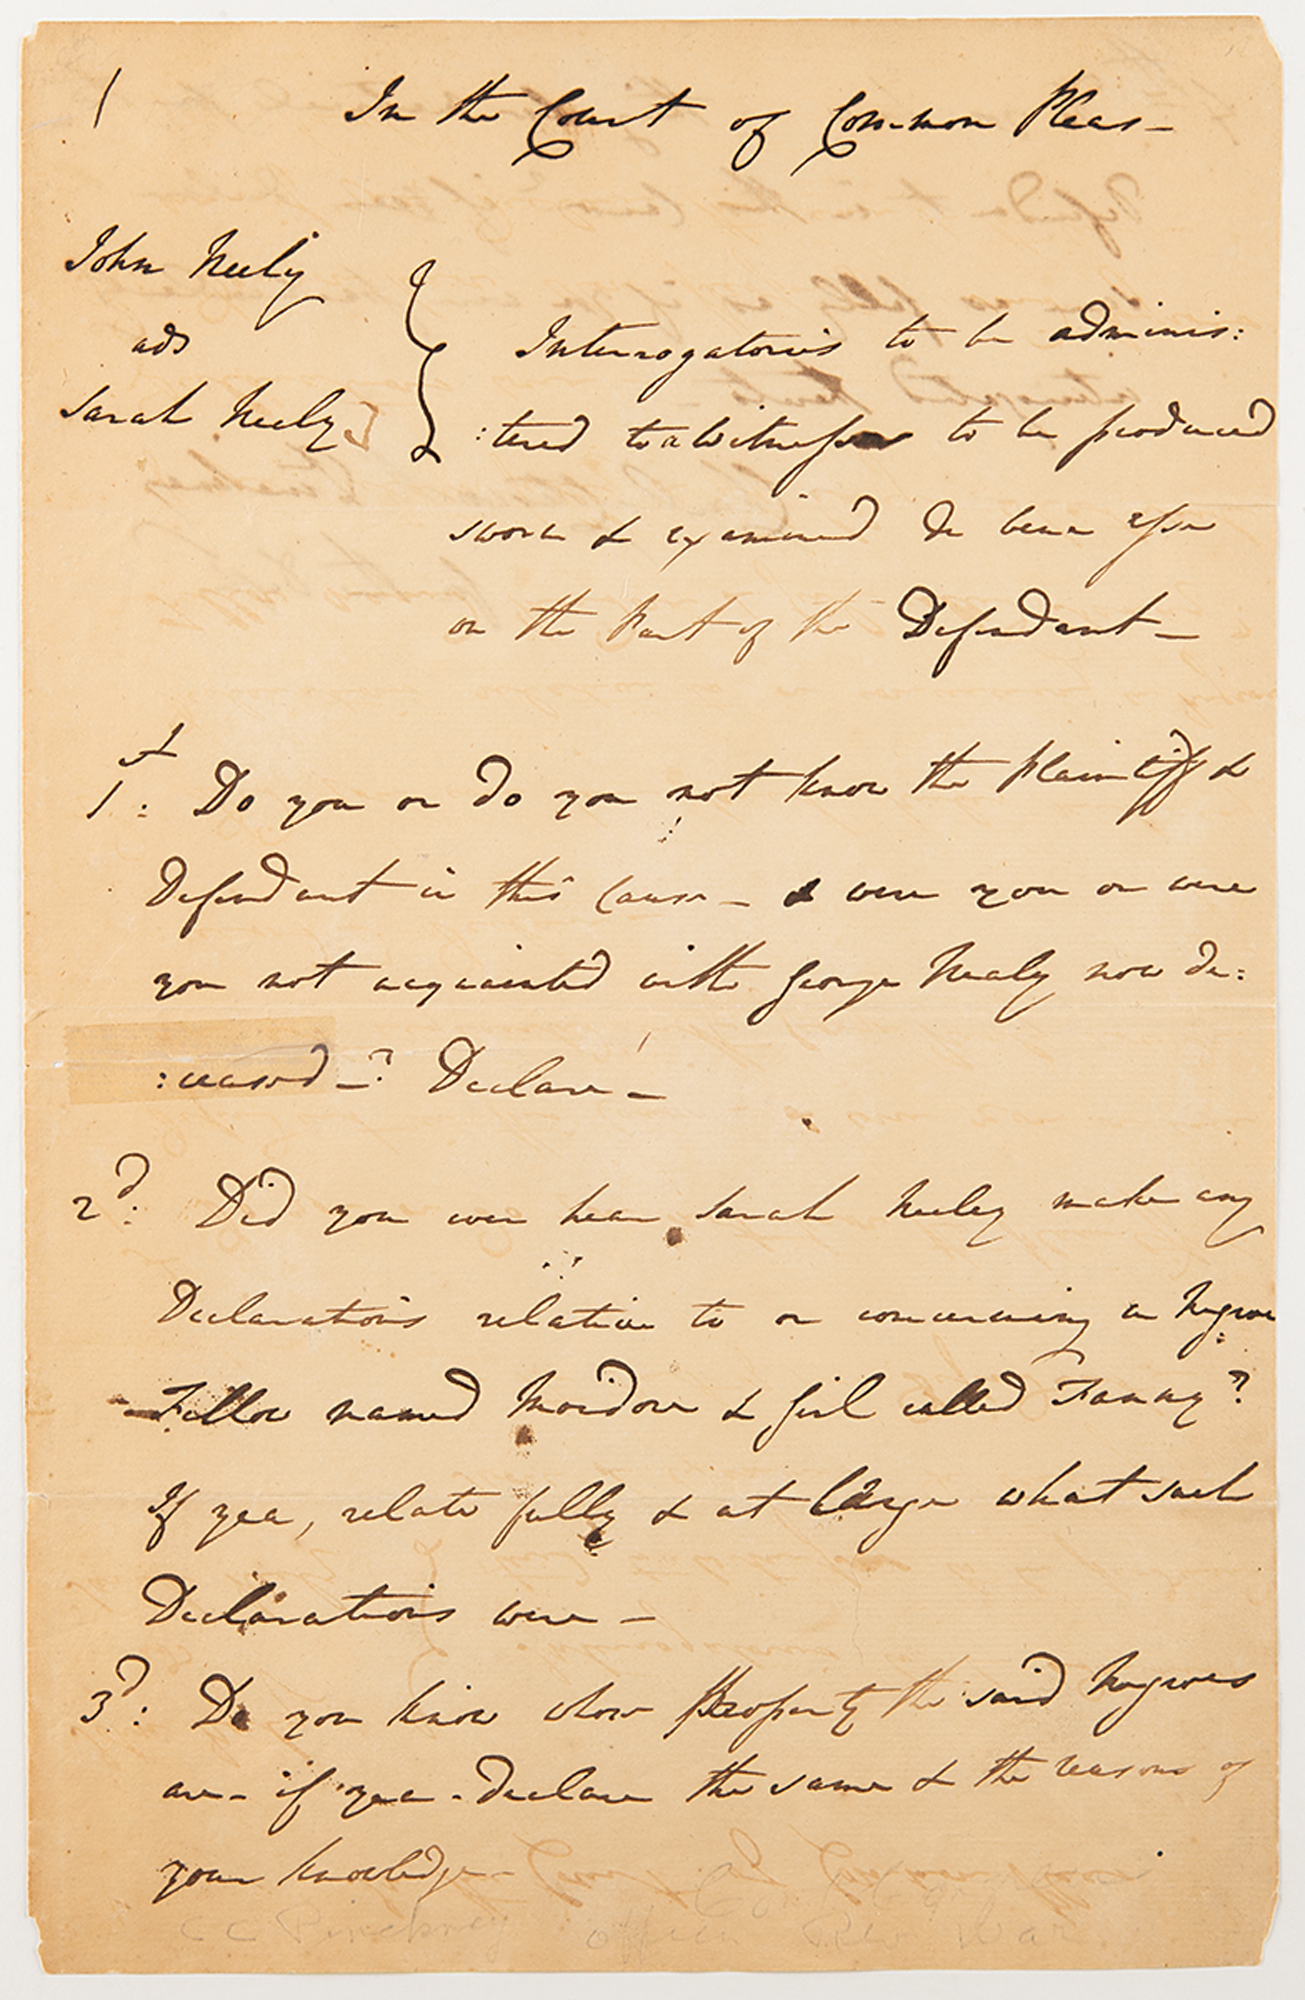 1
In the Court of Common Pleas -
John Neely
ads
Sarah Neely
Interrogatories to be adminis:
:tered to a Witness to be produced
sworn & examined de bene esse
on the Part of the Defendant -
1st: Do you or do you not know the Plaintiff &
Defendant in this Cause - & were you or were
you not acquainted with George Nealy now de:
:ceased -? Declare -
2d: Did you ever hear Sarah Neeley make any
Declarations relative to or concerning a Negroe
Fellow named Moidore & Girl called Fanny?
If yea, relate fully & at large what such
Declarations were -
3d: Do you know whose Property the said Negroes
are - if yea - declare the same & the reasons of
your knowledge -
CC Pinckney officer Rev War